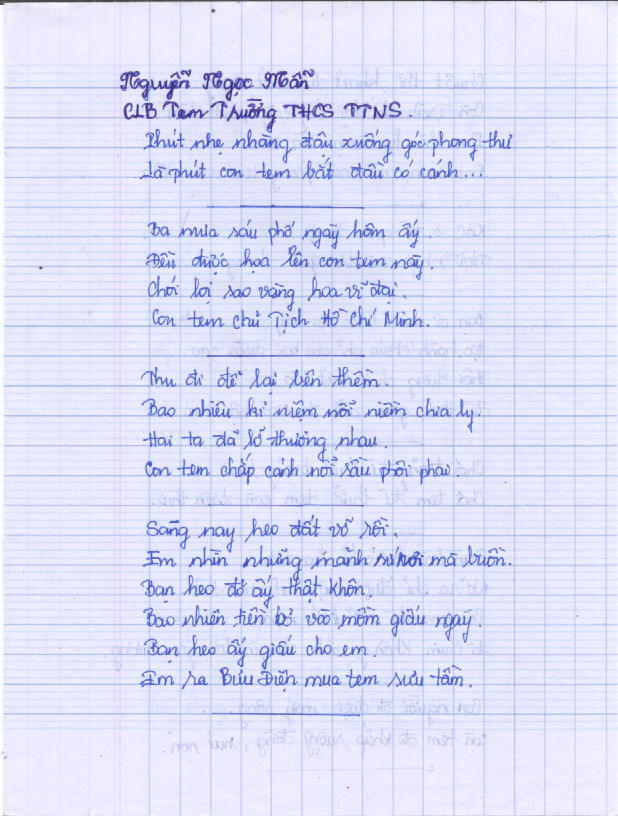 Nguyễn Ngọc Mẫn
CLB Tem Trường THCS TTNS.
Phút nhẹ nhàng đậu xuống góc phong thư
Là phút con tem bắt đầu có cánh...
Ba mưa sáu phố ngày hôm ấy.
Đều được họa lên con tem này.
Chói lọi sao vàng hoa vĩ đại.
Con tem chủ Tịch Hồ Chí Minh.
Thu đi để lại bên thềm.
Bao nhiêu kỉ niệm nỗi niềm chia ly.
Hai ta đã lỡ thương nhau.
Con tem chắp cánh nỗi sầu phôi phai.
Sáng nay heo đất vỡ rồi.
Em nhìn những mảnh rơi mà buồn.
Bạn heo đỏ ấy thật khôn.
Bao nhiên tiền bỏ vào mồm giấu ngay.
Bạn heo ấy giấu cho em.
Em ra Bưu Điện mua tem sưu tầm.